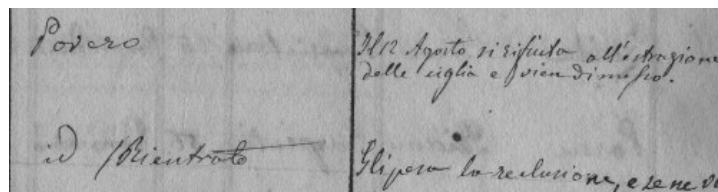 Povero
Il 12 Agosto si rifiuta all'estrazione
delle ciglia e vien dimesso.
id (Rientrato
Gli pesa la reclusione, e se ne